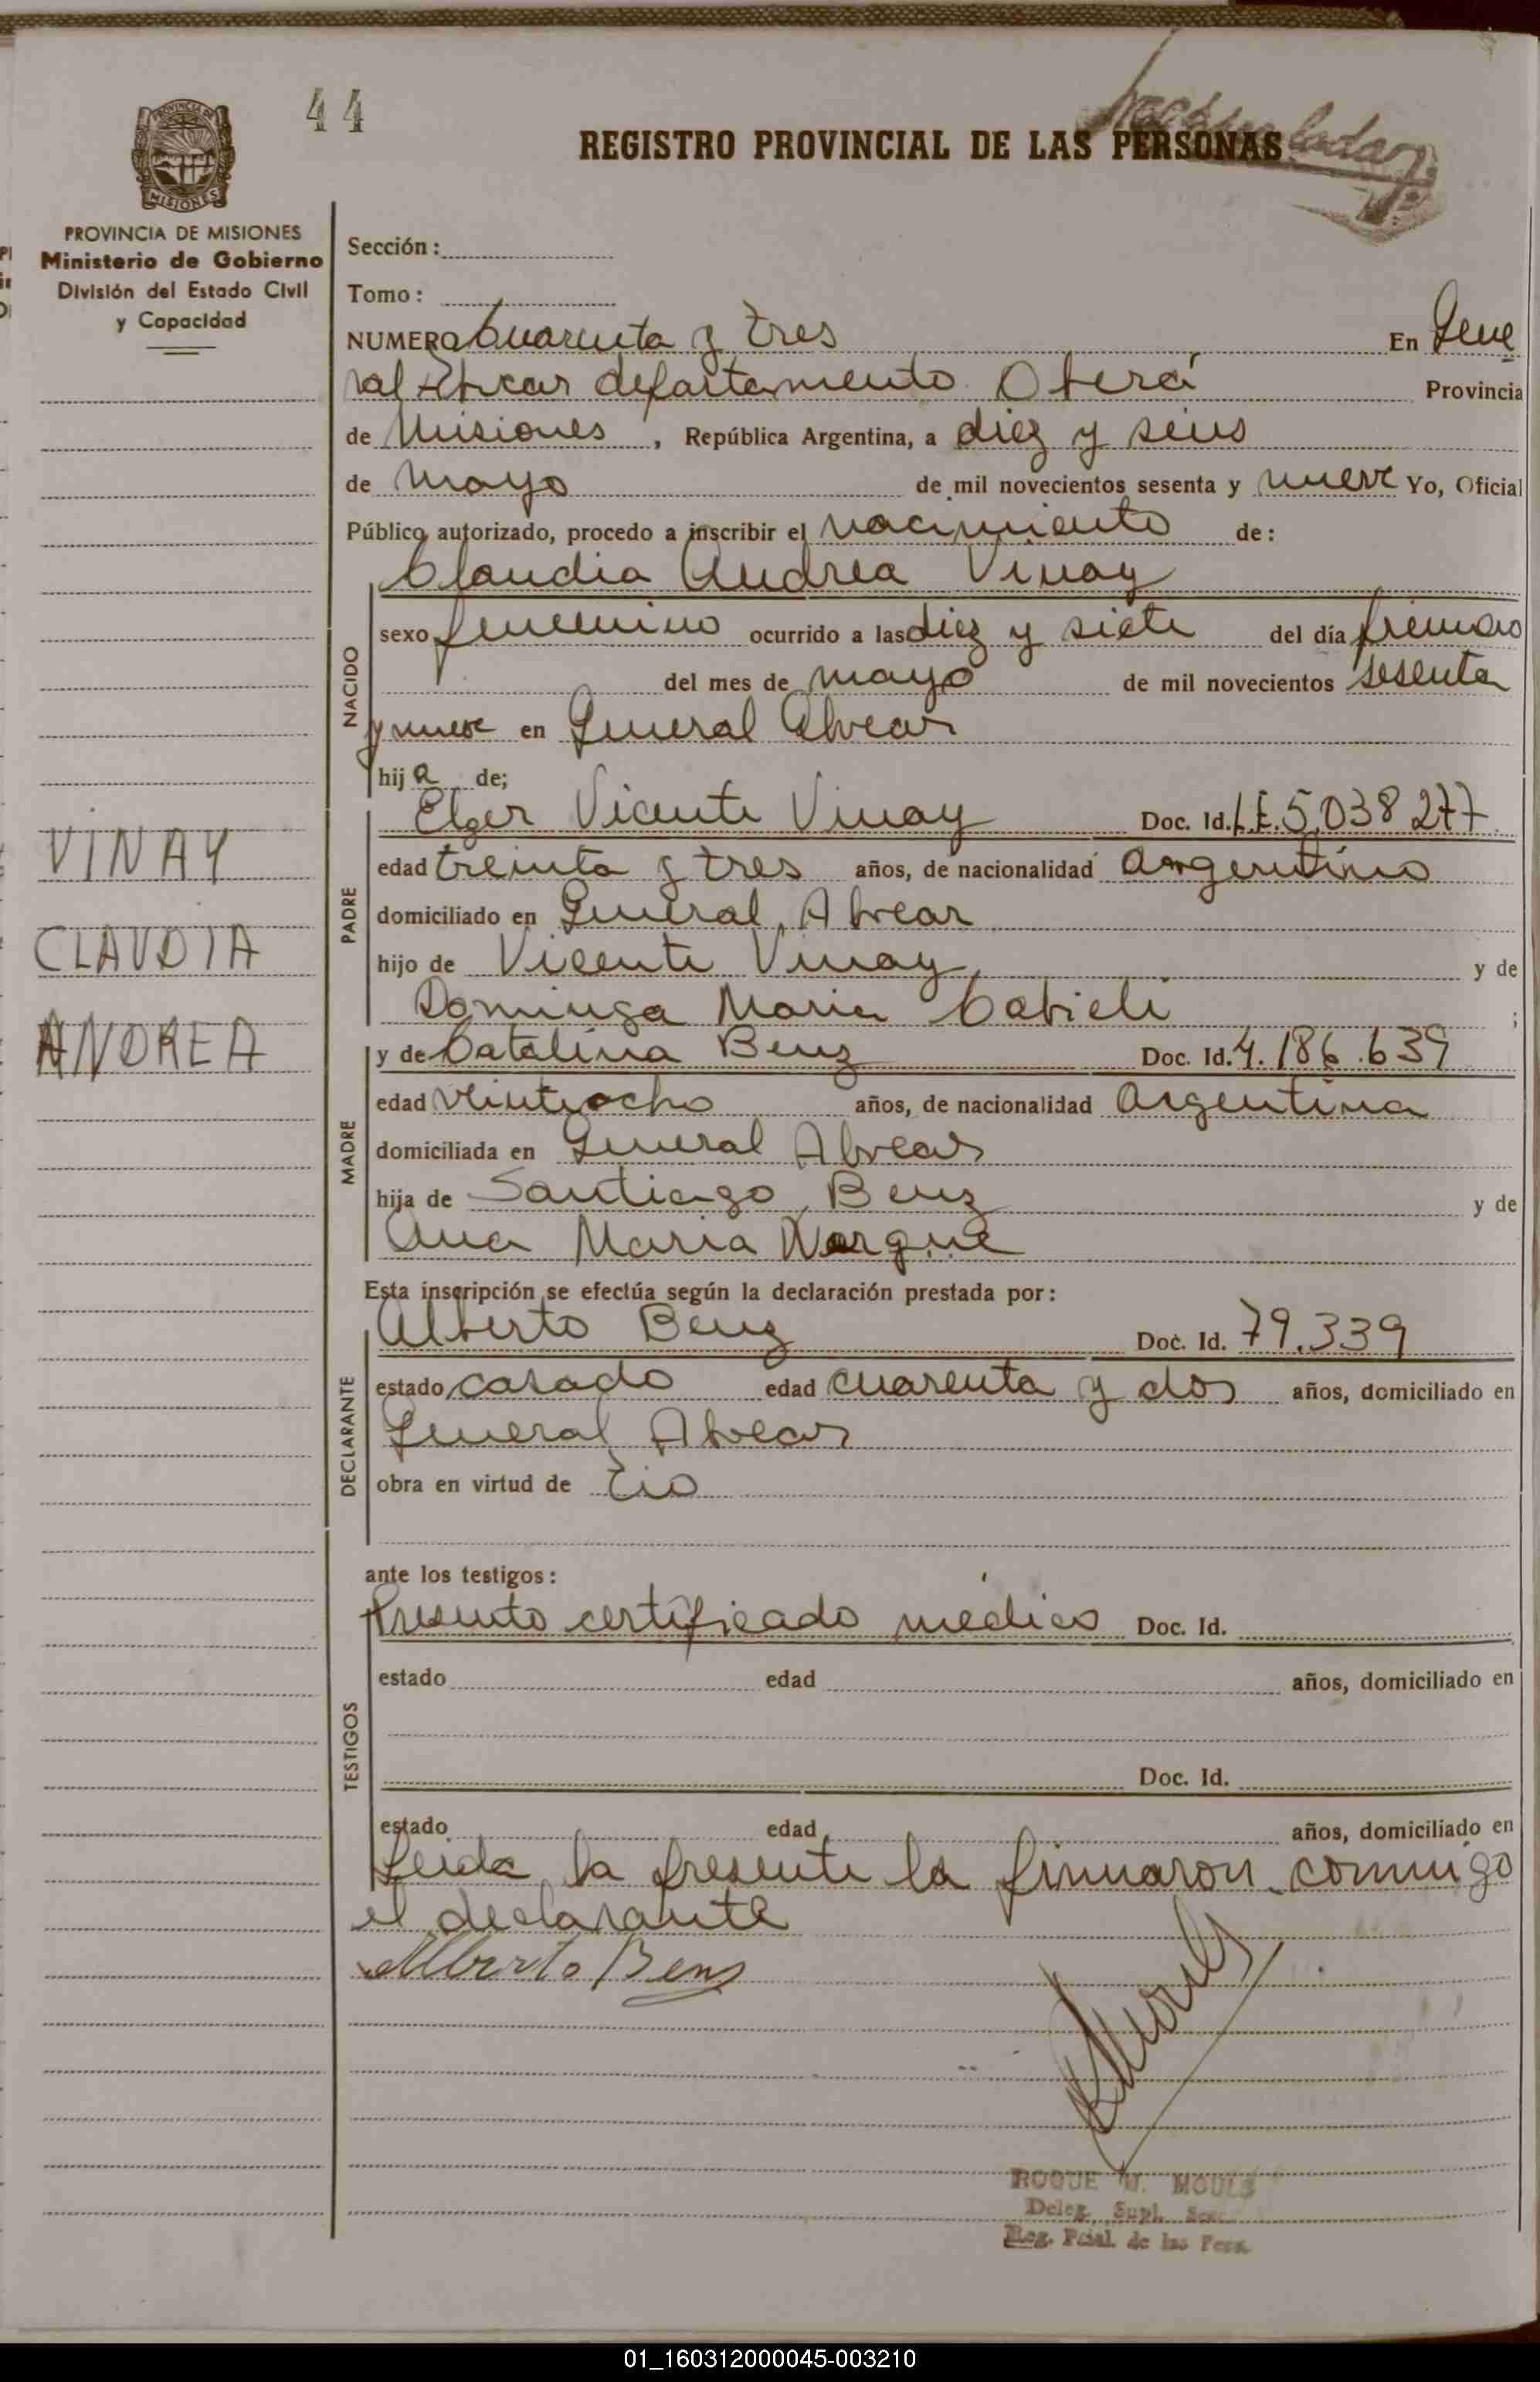 44
REGISTRO PROVINCIAL DE LAS PERSONAS
PROVINCIA DE MISIONES
MISIONES
PROVINCIA DE MISIONES
Ministerio de Gobierno
División del Estado Civil
y Capacidad
Sección:
Tomo:
NUMERO Cuarenta y tres En Gene
ral Alvear departamento Oberá Provincia
de Misiones, República Argentina, a diez y seis
de mayo de mil novecientos sesenta y nueve Yo, Oficial
Público autorizado, procedo a inscribir el nacimiento de:
Claudia Andrea Vinay
NACIDO
sexo femenino ocurrido a las diez y siete del día primero
del mes de mayo de mil novecientos sesenta
y nueve en General Alvear
hija de;
VINAY
CLAUDIA
ANDREA
PADRE
Elger Vicente Vinay Doc. Id. L.E. 5.038.277
edad treinta y tres años, de nacionalidad argentino
domiciliado en General Alvear
hijo de Vicente Vinay y de
Dominga Maria ;
MADRE
y de Catalina Benz Doc. Id. 4.186.639
edad veintiocho años, de nacionalidad Argentina
domiciliada en General Alvear
hija de Santiago Benz y de
Ana Maria
Esta inscripción se efectúa según la declaración prestada por:
DECLARANTE
Alberto Benz Doc. Id. 79.339
estado casado edad cuarenta y dos años, domiciliado en
General Alvear
obra en virtud de Tio
ante los testigos:
TESTIGOS
Presento certificado médico Doc. Id.
estado edad años, domiciliado en
Doc. Id.
estado edad años, domiciliado en
Leida la presente la firmaron conmigo
el declarante
Alberto Benz
ROQUE MOULS
Deleg. Supl.
Reg. Pcial. de las Pers.
01_160312000045-003210